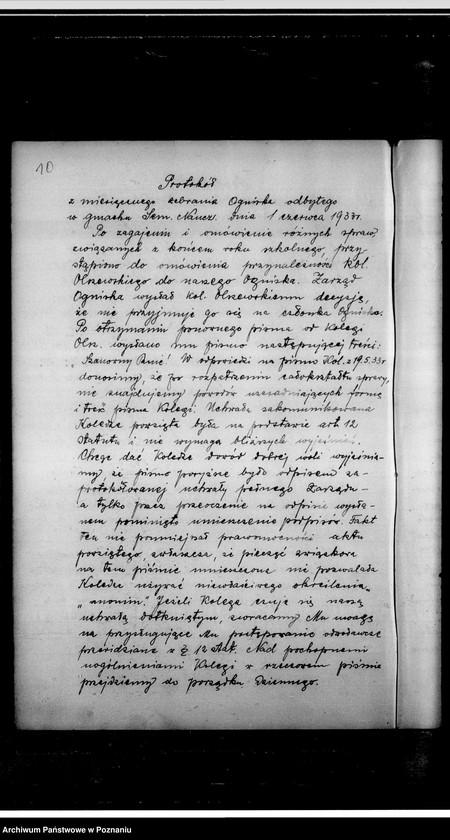 10
Protokół
z miesięcznego zebrania Ogniska odbytego
w gmachu Sem. Naucz. dnia 1 czerwca 1933r.
Po zagajeniu i omówienie różnych spraw,
związanych z końcem roku szkolnego, przy-
stąpiono do omówienia przynależności kol.
Olszewskiego do naszego Ogniska. Zarząd
Ogniska wysłał kol. Olszewskiemu decyzję,
że nie przyjmuje go się na członka Ogniska.
Po otrzymaniu ponownego pisma od Kolegi
Olsz. wysłano mu pismo następującej treści:
"Szanowny Panie! W odpowiedzi na pismo Kol. z 19.5.33r
donosimy, że po rozpatrzeniu całokształtu sprawy,
nie znajdujemy powodów uzasadniających formę
i treść pisma Kolegi. Uchwała zakomunikowana
Koledze powzięta była na podstawie art. 12
Statutu i nie wymaga bliższych wyjaśnień.
Chcąc dać Koledze dowód dobrej woli wyjaśnia-
my, że pismo powyższe było odpisem za-
protokółowanej uchwały pełnego Zarządu -
a tylko przez przeoczenie na odpisie wysła-
nem pominięto umieszczenie podpisów. Fakt
ten nie pomniejszał prawomocności aktu
powziętego, zwłaszcza, że pieczęć związkowa
na tem piśmie umieszczona nie pozwalała
Koledze używać niewłaściwego określenia
"anonim". Jeżeli Kolega czuje się naszą
uchwałą dotkniętym, zwracamy Mu uwagę
na przysługujące Mu postępowanie odwoławcze
przewidziane w § 12 Stat. Nad pochopnemi
uogólnieniami Kolegi w rzeczowem piśmie
przejdziemy do porządku dziennego.
Archiwum Państwowe w Poznaniu